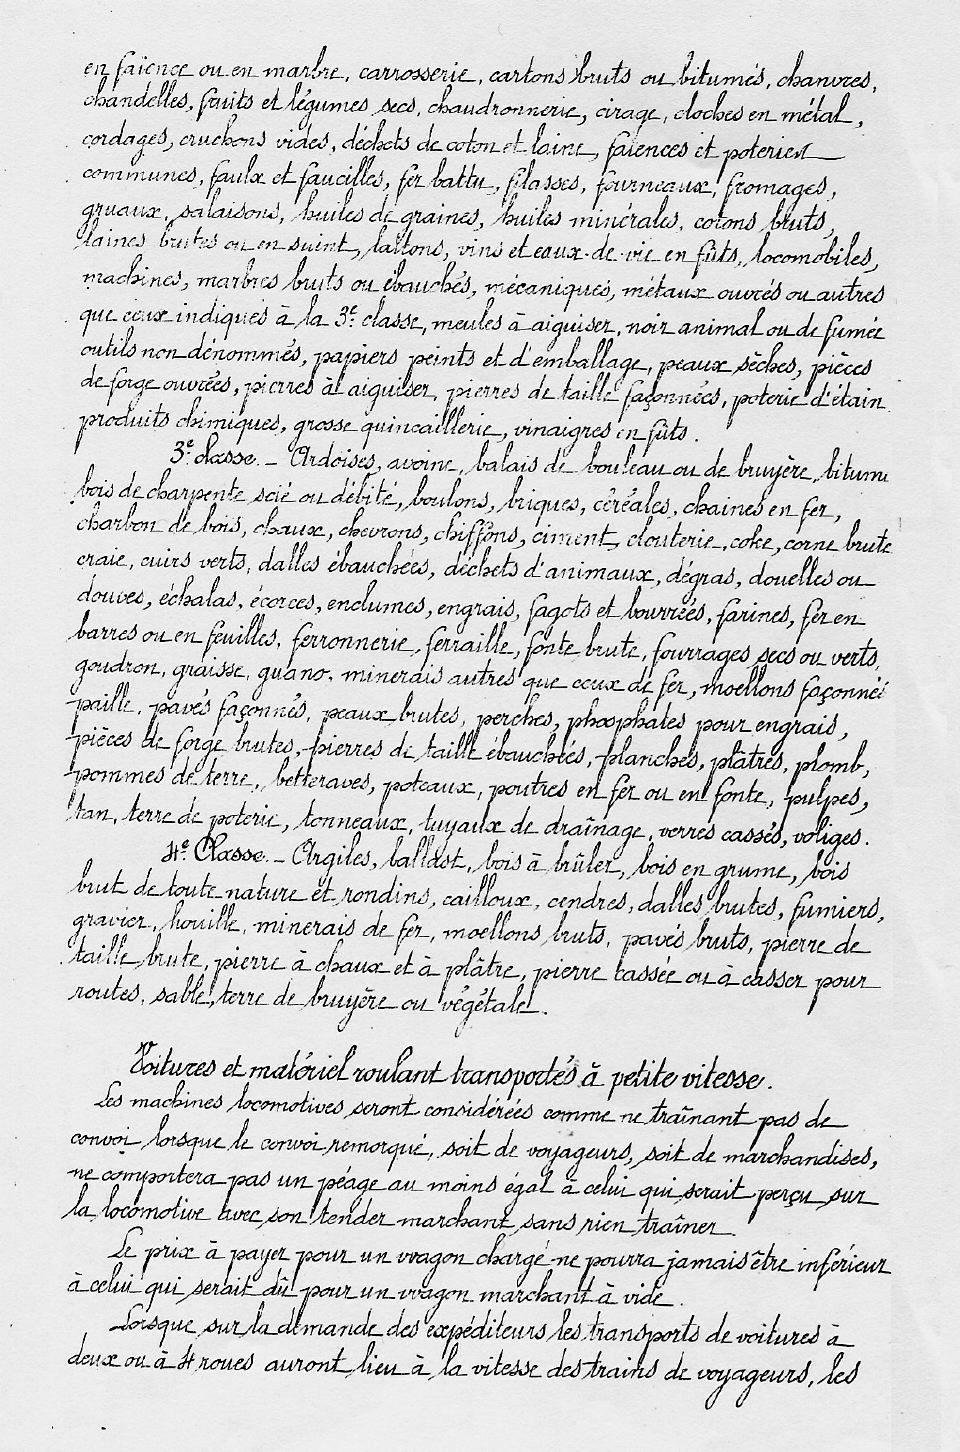 en faïence ou en marbre, carrosserie, cartons bruts ou bitumés, chanvres,
chandelles, fruits et légumes secs, chaudronnerie, cirage, cloches en métal,
cordages, cruchons vides, déchets de coton et laine, faïences et poteries
communes, faulx et faucilles, fer battu, filasses, fourneaux, fromages,
gruaux, salaisons, huiles de graines, huiles minérales, cotons bruts,
laines brutes ou en suint, laitons, vins et eaux-de-vie en fûts, locomobiles,
machines, marbres bruts ou ébauchés, mécaniques, métaux ouvrés ou autres
que ceux indiqués à la 3e classe, meules à aiguiser, noir animal ou de fumée
outils non dénommés, papiers peints et d'emballage, peaux sèches, pièces
de forge ouvrées, pierres à aiguiser, pierres de taille façonnées, poterie d'étain
produits chimiques, grosse quincaillerie, vinaigres en fûts.
3e classe. _ Ardoises, avoine, balais de bouleau ou de bruyère, bitume
bois de charpente scié ou débité, boulons, briques, céréales, chaines en fer,
charbon de bois, chaux, chevrons, chiffons, ciment, clouterie, coke, corne brute
craie, cuirs verts, dalles ébauchées, déchets d'animaux, dégras, douelles ou
douves, échalas, écorces, enclumes, engrais, fagots et bourrées, farines, fer en
barres ou en feuilles, ferronnerie, ferraille, fonte brute, fourrages secs ou verts,
goudron, graisse, guano, minerais autres que ceux de fer, moellons façonnés
paille, pavés façonnés, peaux brutes, perches, phosphates pour engrais,
pièces de forge brutes, pierres de taille ébauchées, planches, plâtres, plomb,
pommes de terre, betteraves, poteaux, poutres en fer ou en fonte, pulpes,
tan, terre de poterie, tonneaux, tuyaux de draînage, verres cassés, voliges.
4e Classe. _ Argiles, ballast, bois à brûler, bois en grume, bois
brut de toute nature et rondins, cailloux, cendres, dalles brutes, fumiers,
gravier, houille, minerais de fer, moellons bruts, pavés bruts, pierre de
taille brute, pierre à chaux et à plâtre, pierre cassée ou à casser pour
routes, sable, terre de bruyère ou végétale.
Voitures et matériel roulant transportés à petite vitesse.
Les machines locomotives seront considérées comme ne traînant pas de
convoi lorsque le convoi remorqué, soit de voyageurs, soit de marchandises,
ne comportera pas un péage au moins égal à celui qui serait perçu sur
la locomotive avec son tender marchant sans rien traîner.
Le prix à payer pour un wagon chargé ne pourra jamais être inférieur
à celui qui serait dû pour un wagon marchant à vide.
Lorsque sur la demande des expéditeurs les transports de voitures à
deux ou à 4 roues auront lieu à la vitesse des trains de voyageurs, les